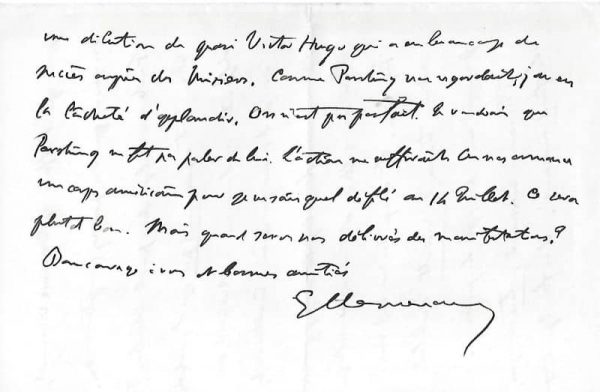 une dilution de quasi Victor Hugo qui a eu beaucoup de
succès auprès des Messieurs. Comme Pershing me regardait, j'ai eu
la lâcheté d'applaudir. On n'est pas parfait. Je voudrais que
Pershing ne fît pas parler de lui. L'action me suffirait. On nous annonce
un corps américain pour je ne sais quel défilé au 14 Juillet. Ce sera
plutôt bon. Mais quand serons nous délivrés des manifestations ?
Bon courage à vous et bonnes amitiés
G Clemenceau